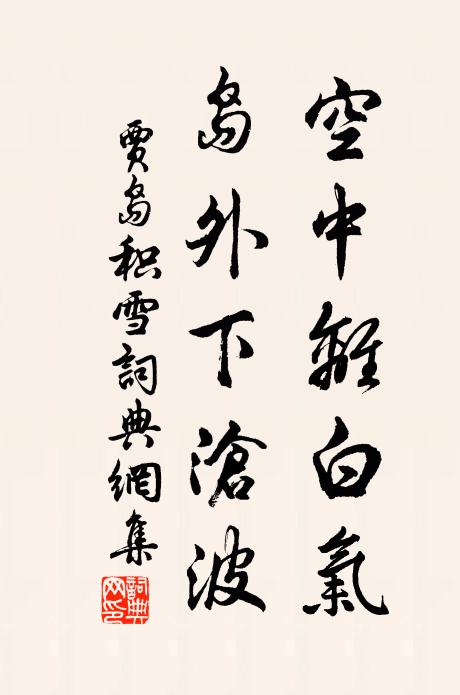 空中離白氣
島外下滄波
賈島积雪詞典網集
詞典網印